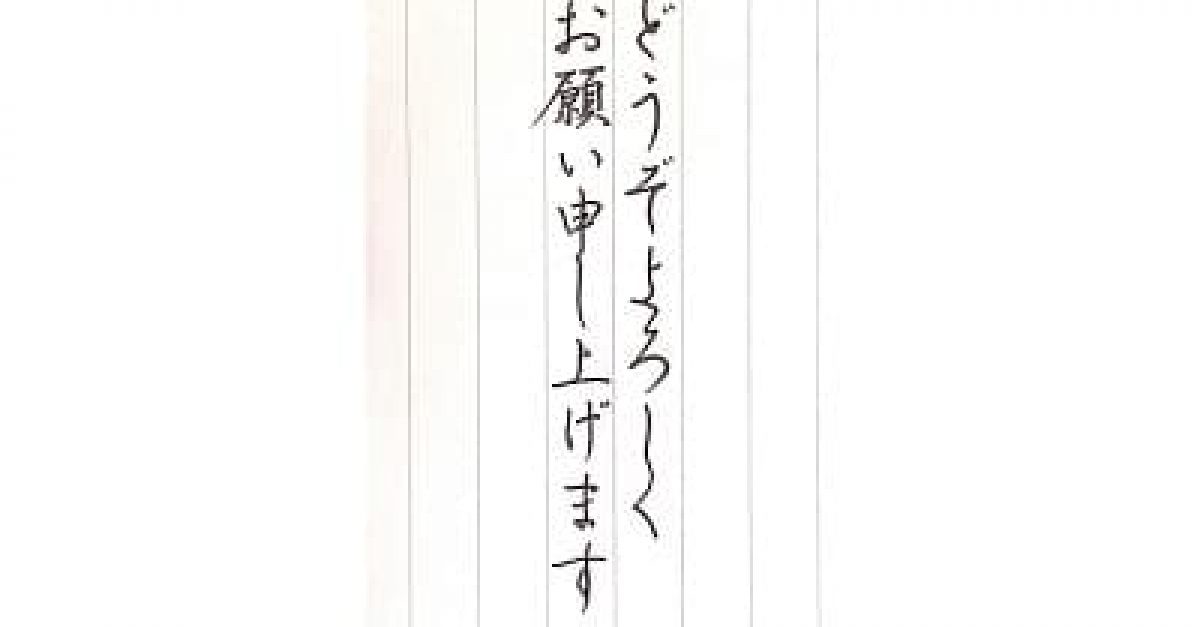 どうぞよろしく
お願い申し上げます